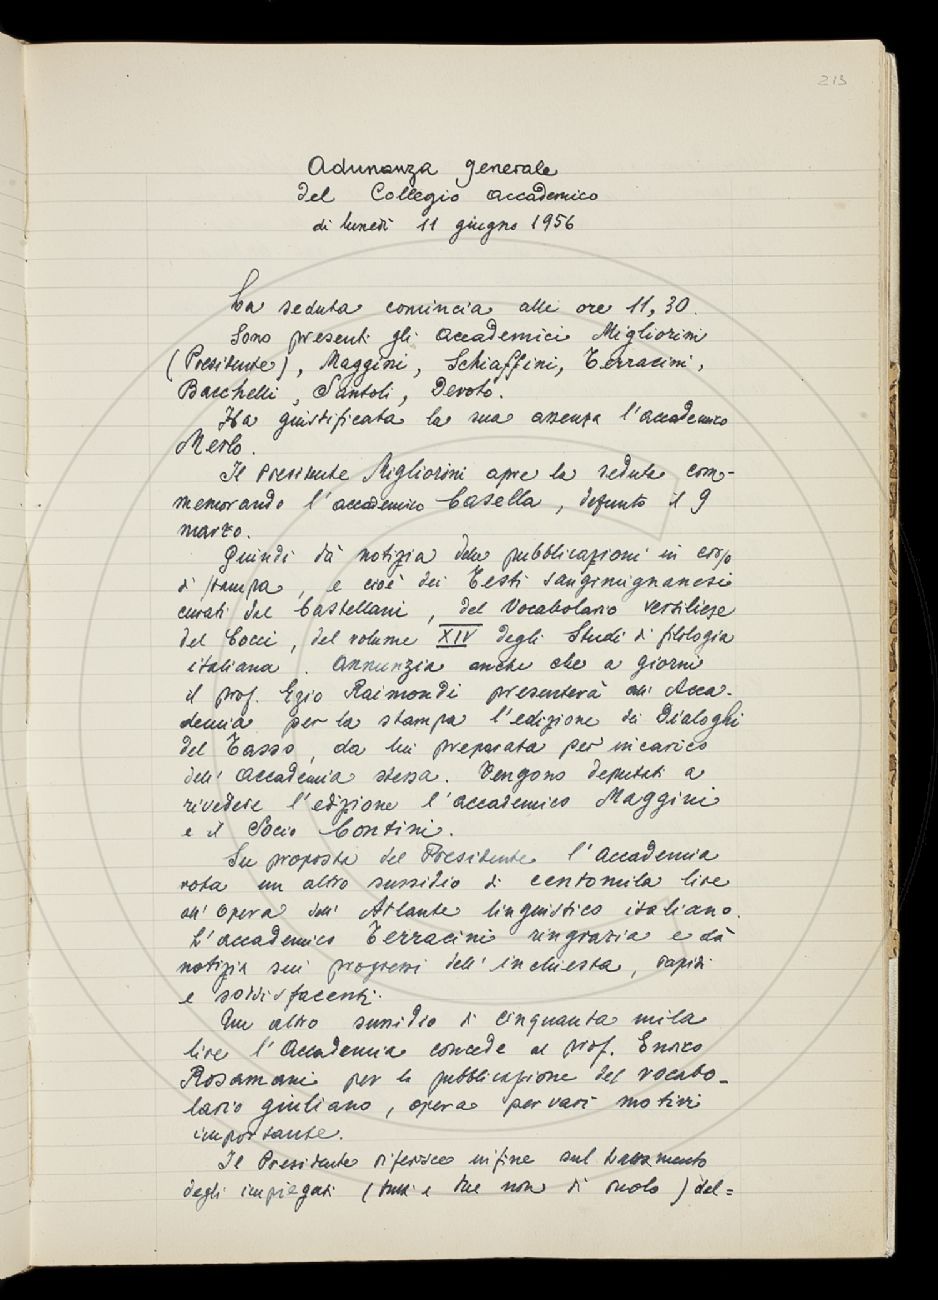 213
Adunanza generale
del Collegio accademico
di lunedì 11 giugno 1956
La seduta comincia alle ore 11,30.
Sono presenti gli accademici Migliorini
(Presidente), Maggini, Schiaffini, Terracini,
Bacchelli, Santoli, Devoto.
Ha giustificata la sua assenza l'accademico
Merlo.
Il Presidente Migliorini apre la seduta com-
memorando l'accademico Casella, defunto il 9
marzo.
Quindi dà notizia delle pubblicazioni in corso
di stampa, e cioè dei Testi sangimignanesi
curati dal Castellani, del Vocabolario versiliese
del Cocci, del volume XIV degli Studi di filologia
italiana. Annunzia anche che a giorni
il prof. Ezio Raimondi presenterà all'Acca-
demia per la stampa l'edizione dei Dialoghi
del Tasso, da lui preparata per incarico
dell'Accademia stessa. Vengono deputati a
rivedere l'edizione l'accademico Maggini
e il Socio Contini.
Su proposta del Presidente l'Accademia
vota un altro sussidio di centomila lire
all'opera dell'Atlante linguistico italiano.
L'accademico Terracini ringrazia e dà
notizia sui progressi dell'inchiesta, rapidi
e soddisfacenti.
Un altro sussidio di cinquanta mila
lire l'Accademia concede al prof. Enrico
Rosamani per la pubblicazione del vocabo-
lario giuliano, opera per vari motivi
importante.
Il Presidente riferisce infine sul trattamento
degli impiegati (tutti e due non di ruolo) del=